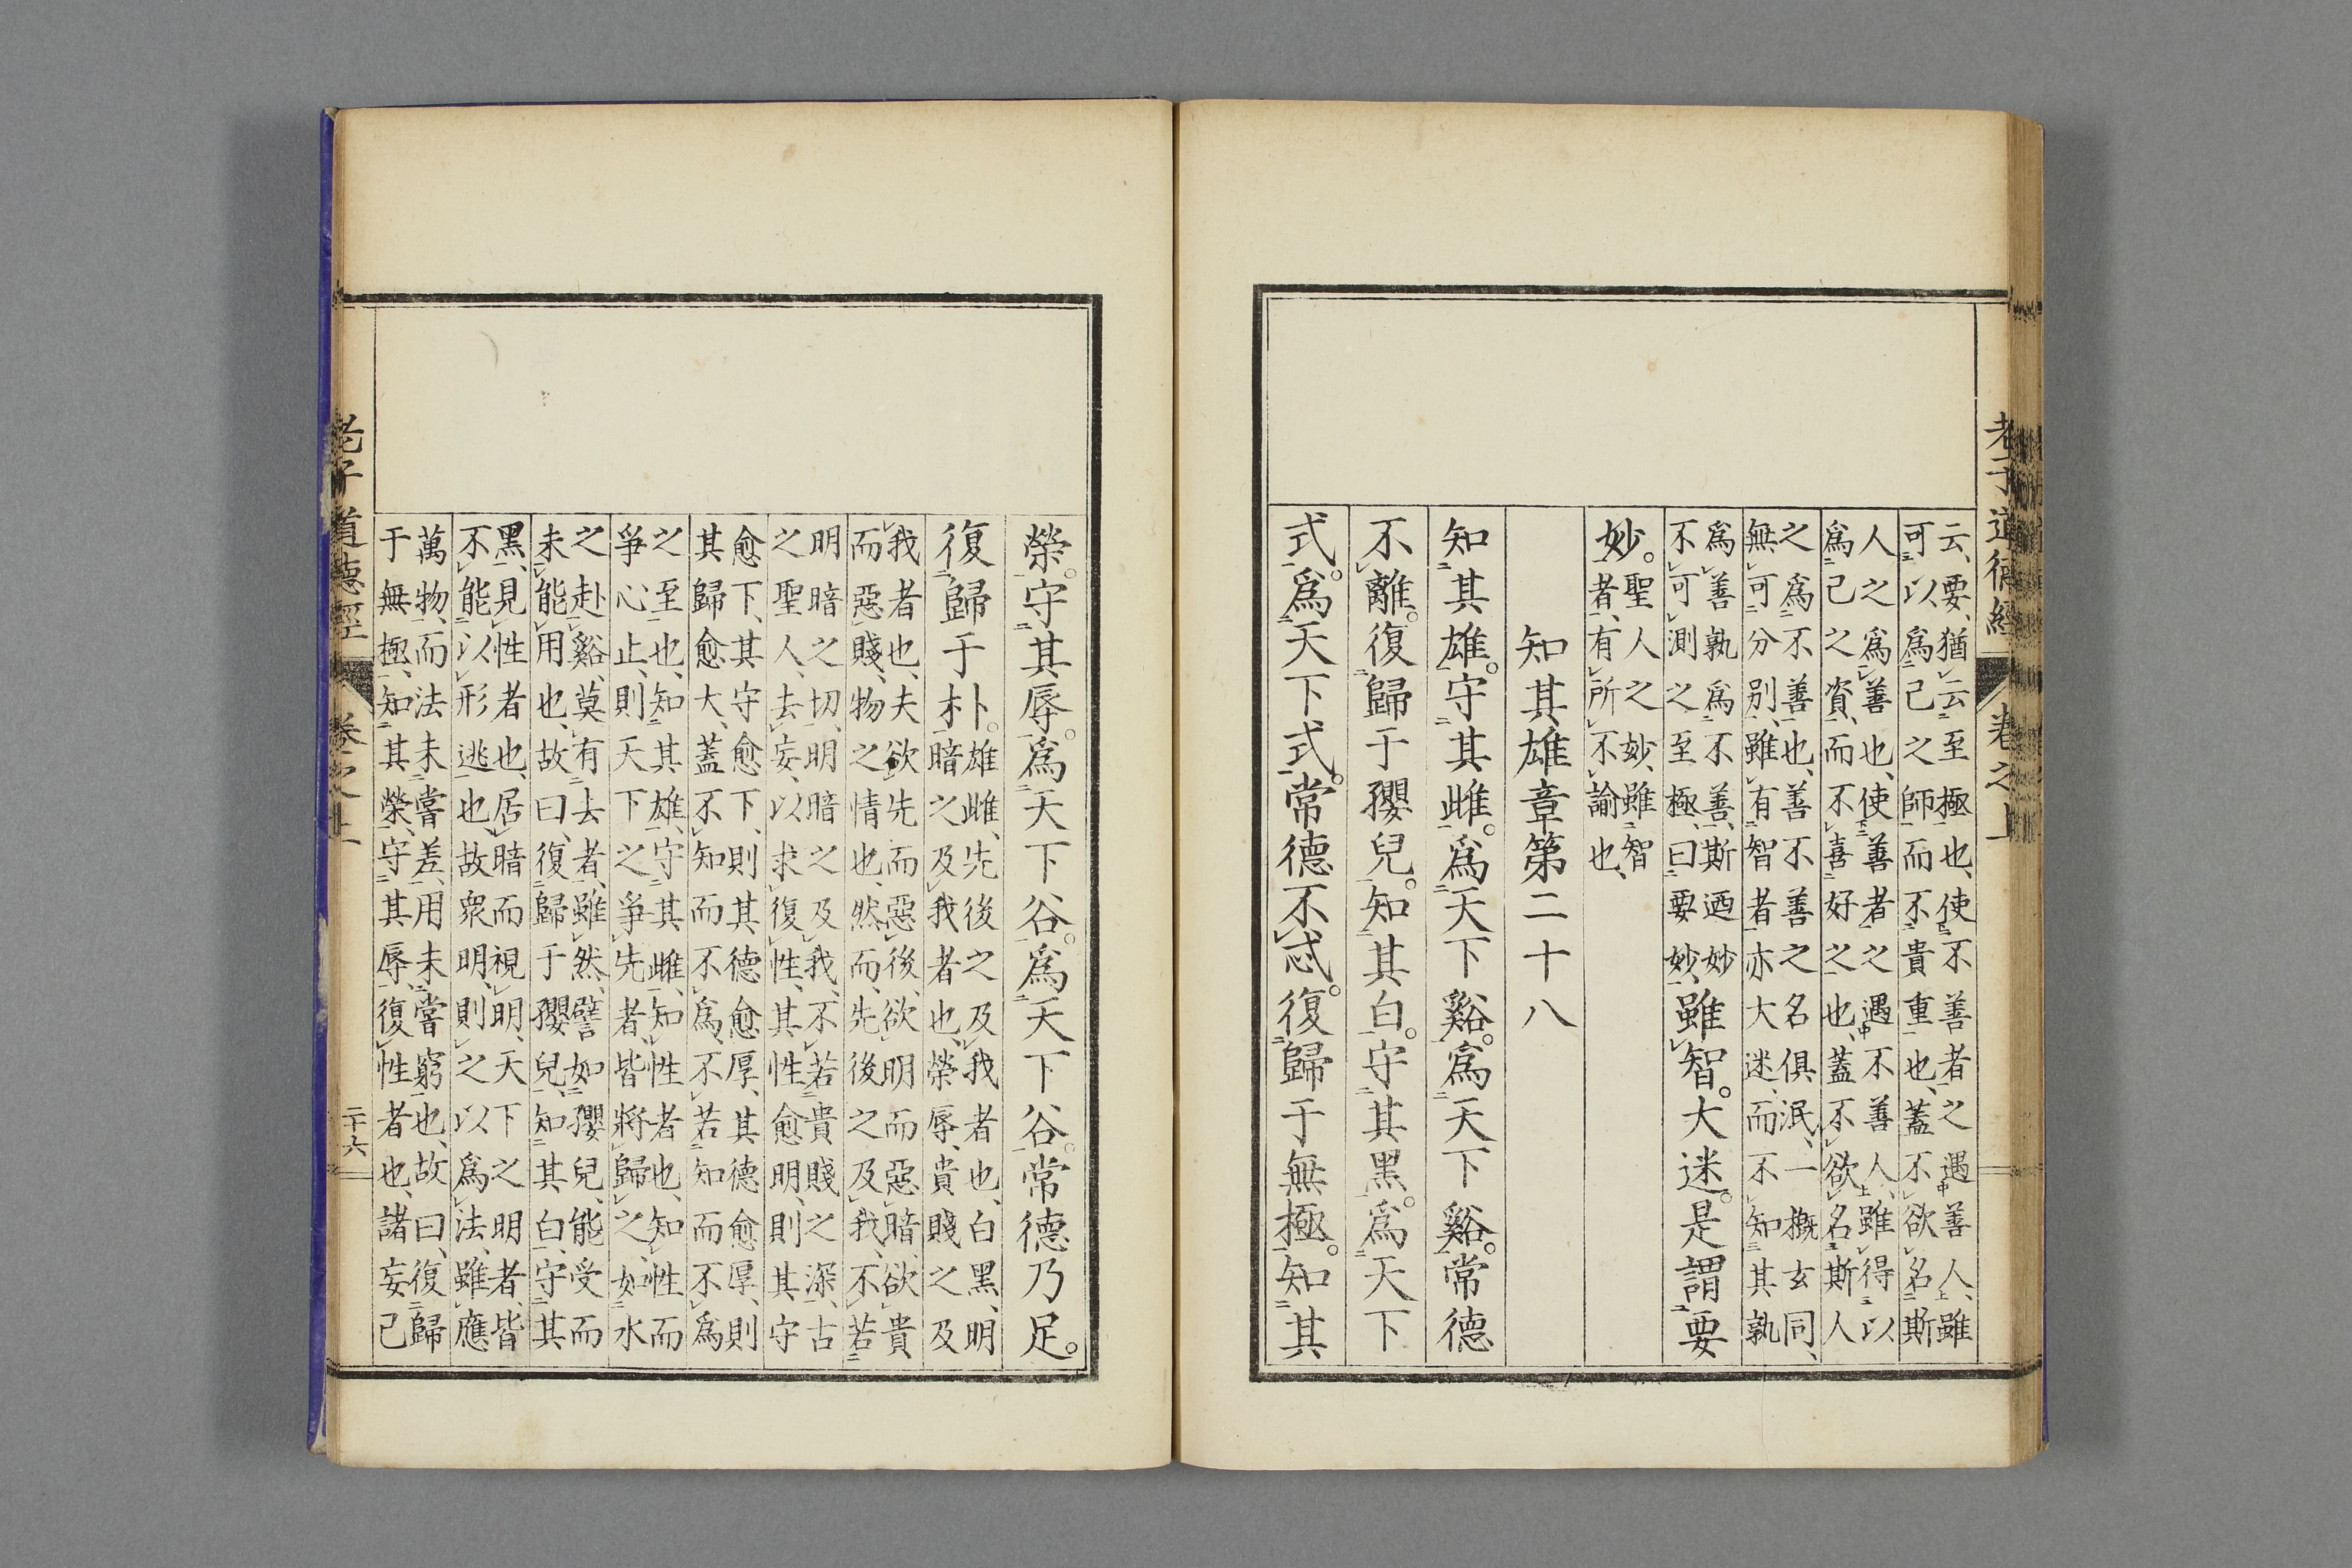 老子道德經 卷之上
云、要、猶云至極也、使不善者之遇善人、雖
可以爲己之師、而不貴重也、蓋不欲名斯
人之爲善也、使善者之遇不善人、雖得以
爲己之資、而不喜好之也、蓋不欲名斯人
之爲不善也、善不善之名俱泯、一概玄同、
無可分別、雖有智者、亦大迷、而不知其孰
爲善孰爲不善、斯迺妙
不可測之至極、曰要妙、雖智。大迷。是謂要
妙。聖人之妙、雖智
者、有所不諭也、
知其雄章第二十八
知其雄。守其雌。爲天下谿。爲天下谿。常德
不離。復歸于孾兒。知其白。守其黑。爲天下
式。爲天下式。常德不忒。復歸于無極。知其
榮。守其辱。爲天下谷。爲天下谷。常德乃足。
復歸于朴。雄雌、先後之及我者也、白黑、明
暗之及我者也、榮辱、貴賤之及
我者也、夫欲先而惡後、欲明而惡暗、欲貴
而惡賤、物之情也、然而、先後之及我、不若
明暗之切、明暗之及我、不若貴賤之深、古
之聖人、去妄、以求復性、其性愈明、則其守
愈下、其守愈下、則其德愈厚、其德愈厚、則
其歸愈大、蓋不知而不爲、不若知而不爲
之至也、知其雄、守其雌、知性者也、知性而
爭心止、則天下之爭先者、皆將歸之、如水
之赴谿、莫有去者、雖然、譬如孾兒、能受而
未能用也、故曰、復歸于孾兒、知其白、守其
黑、見性者也、居暗而視明、天下之明者、皆
不能以形逃也、故衆明、則之以爲法、雖應
萬物、而法未嘗差、用未嘗窮也、故曰、復歸
于無極、知其榮、守其辱、復性者也、諸妄已
老子道德經 卷之上 二十六